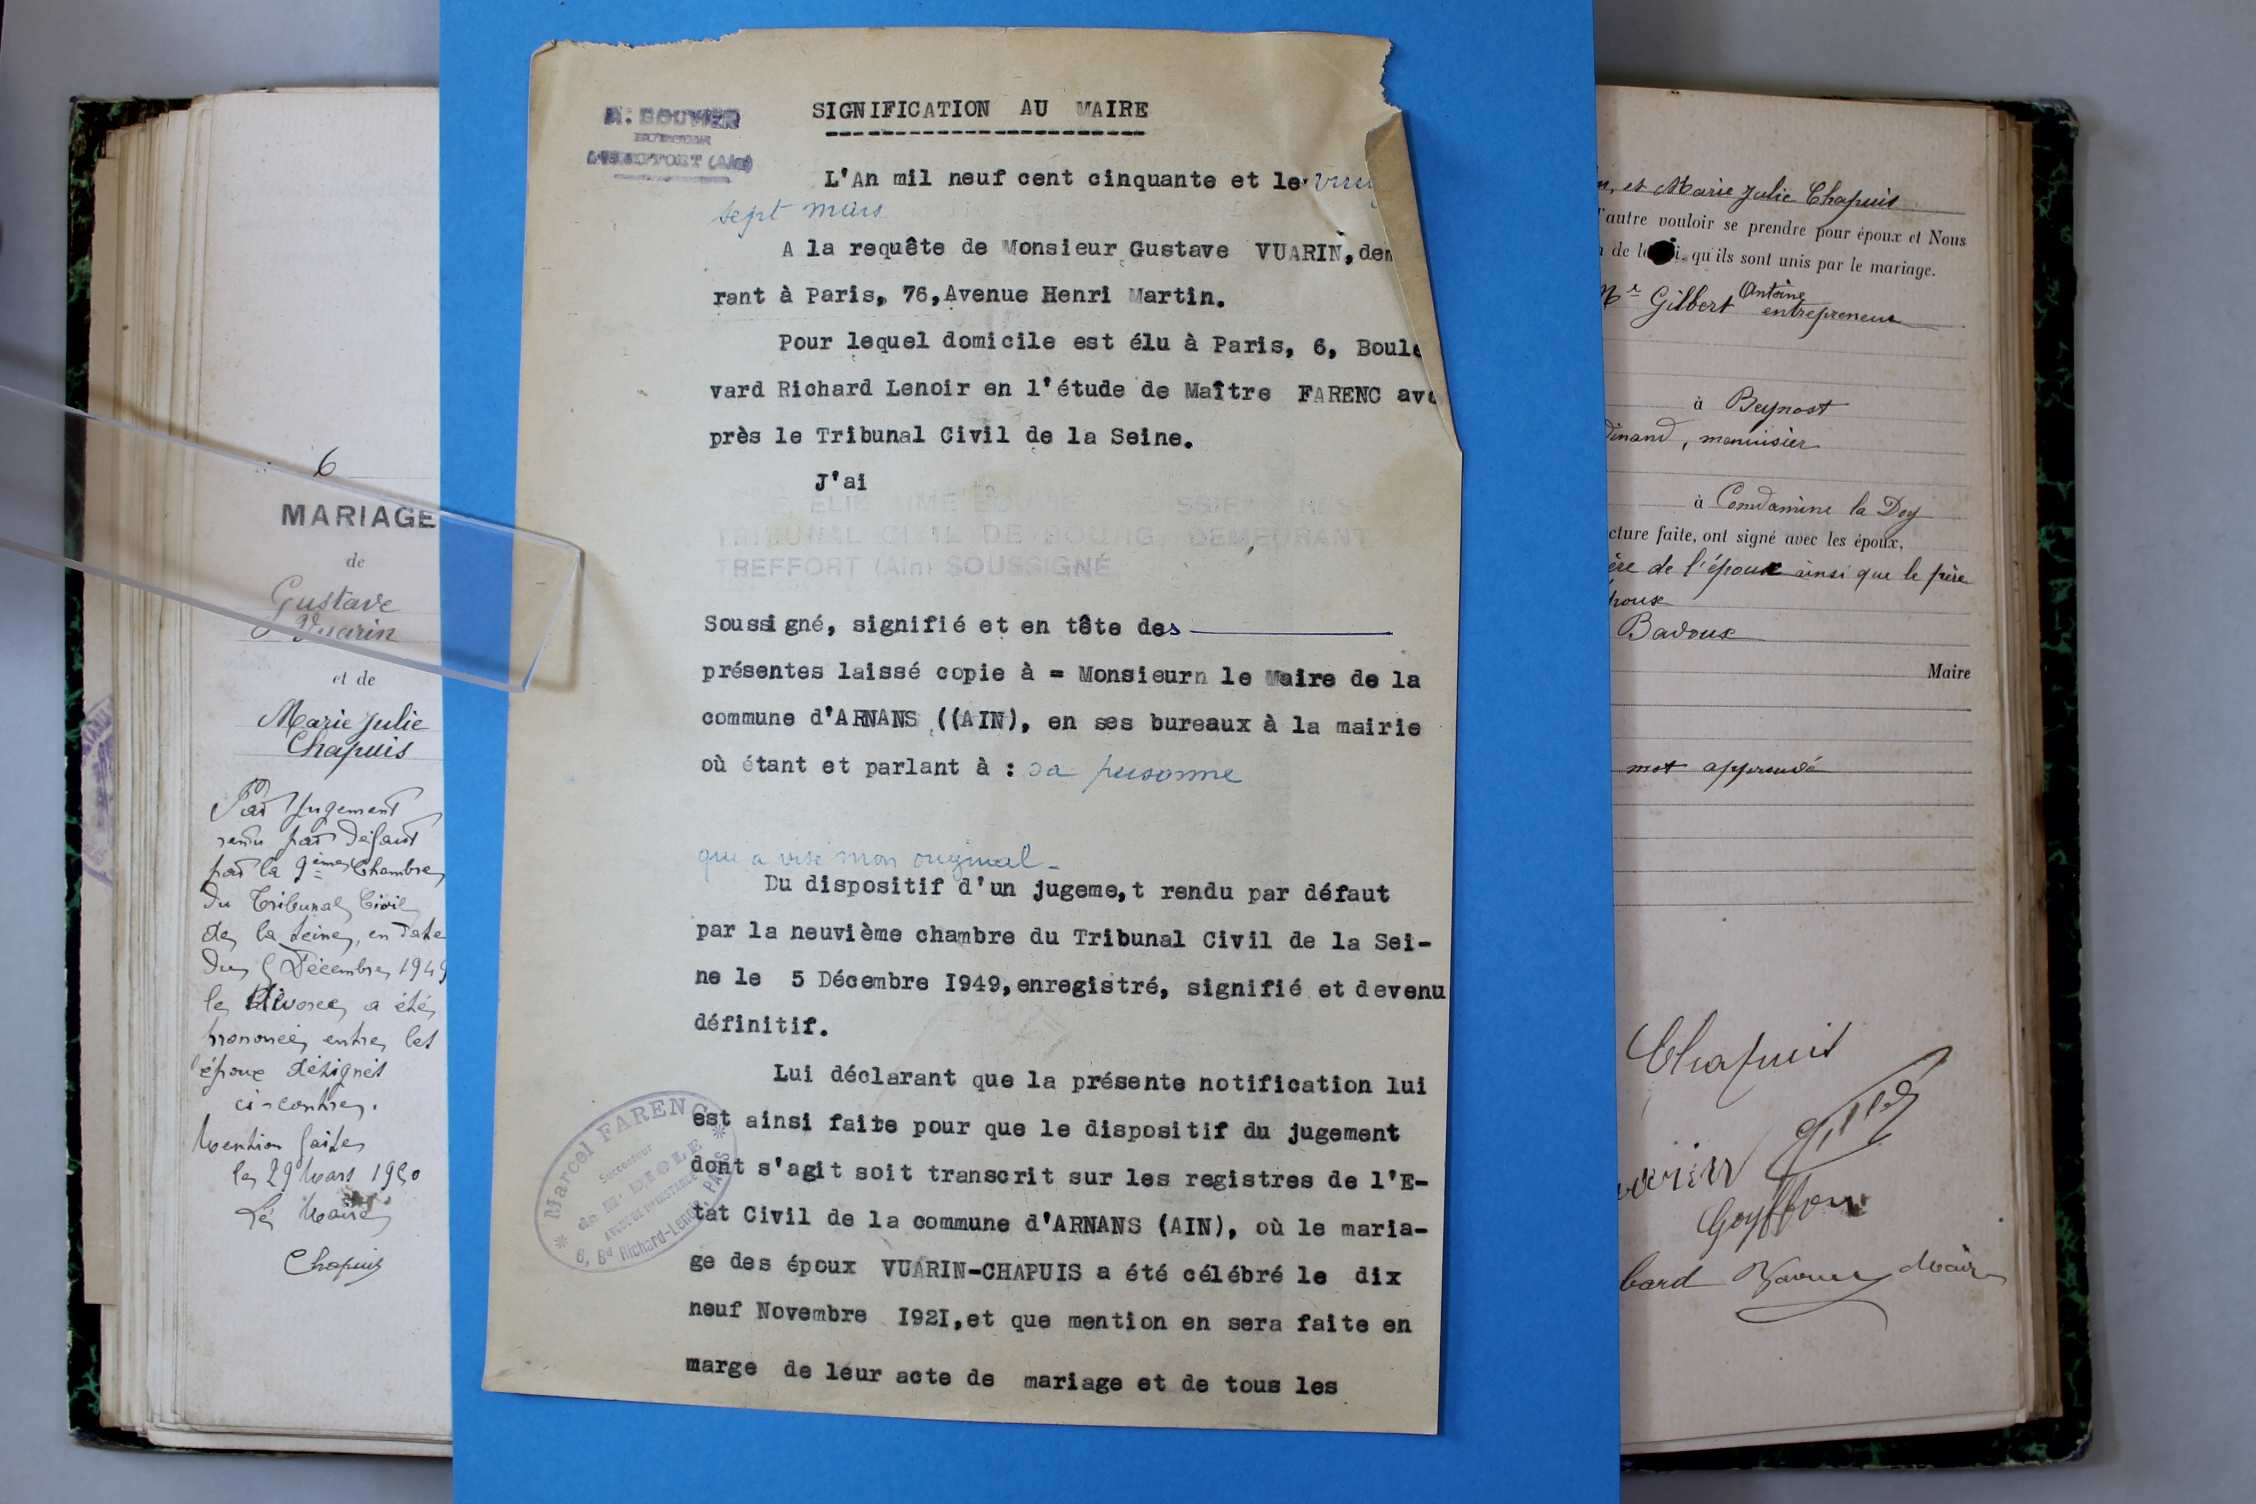 6
MARIAGE
de
Gustave
Vuarin
et de
Marie Julie
Chapuis
Par Jugement
rendu par défaut
par la 9ème Chambre
du Tribunal Civil
de la Seine, en date
du 5 Décembre 1949
le Divorce a été
prononcé entre les
époux désignés
ci-contre.
Mention faite
le 29 Mars 1950
Le Maire
Chapuis
SIGNIFICATION AU MAIRE
L'An mil neuf cent cinquante et le
sept mars
A la requête de Monsieur Gustave VUARIN, dem
rant à Paris, 76, Avenue Henri Martin.
Pour lequel domicile est élu à Paris, 6, Boule
vard Richard Lenoir en l'étude de Maître FARENC avo
près le Tribunal Civil de la Seine.
J'ai
TRIBUNAL CIVIL DE BOURG, DEMEURANT
TREFFORT (Ain) SOUSSIGNÉ
Soussigné, signifié et en tête des
présentes laissé copie à = Monsieurn le Maire de la
commune d'ARNANS ((AIN), en ses bureaux à la mairie
où étant et parlant à : sa personne
qui a visé mon original -
Du dispositif d'un jugeme,t rendu par défaut
par la neuvième chambre du Tribunal Civil de la Sei-
ne le 5 Décembre I949, enregistré, signifié et devenu
définitif.
Lui déclarant que la présente notification lui
est ainsi faite pour que le dispositif du jugement
dont s'agit soit transcrit sur les registres de l'E-
tat Civil de la commune d'ARNANS (AIN), où le maria-
ge des époux VUARIN-CHAPUIS a été célébré le dix
neuf Novembre I92I, et que mention en sera faite en
marge de leur acte de mariage et de tous les
Marcel FARENC
Successeur
6, Bd Richard-Lenoir, PARIS
et Marie Julie Chapuis
l'autre vouloir se prendre pour époux et Nous
qu'ils sont unis par le mariage.
Mr Gilbert Antoine
entrepreneur
à Beynost
dinand, menuisier
à Condamine la Doy
cture faite, ont signé avec les époux,
ère de l'époux ainsi que le père
Badoux
Maire
mot approuvé
Chapuis
Goyffon
Maire